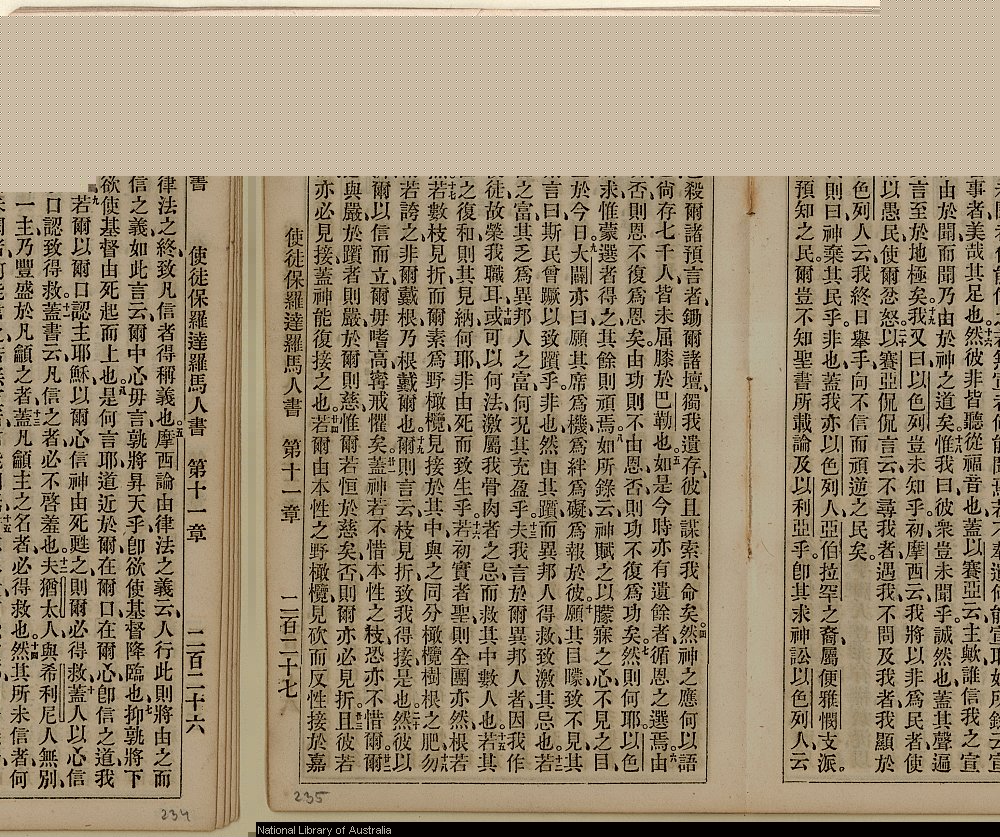 事者美哉其足也然彼非皆聽從福音也蓋以賽亞云主歟誰信我之宣
由於聞而聞乃由於神之道矣惟我曰彼衆豈未聞乎誠然也蓋其聲遍
言至於地極矣我又曰以色列豈未知乎初摩西云我將以非爲民者使
以愚民使爾忿怒以賽亞侃侃言云不尋我者遇我不問及我者我顯於
色列人云我終日舉手向不信而頑逆之民矣
則曰神棄其民乎非也蓋我亦以色列人亞伯拉罕之裔屬便雅憫支派
預知之民爾豈不知聖書所載論及以利亞乎卽其求神訟以色列人云
殺爾諸預言者鋤爾諸壇獨我遺存彼且謀索我命矣然神之應何以語
尙存七千人皆未屈膝於巴勒也如是今時亦有遺餘者循恩之選焉由
否則恩不復爲恩矣由功則不由恩否則功不復爲功矣然則何耶以色
求惟蒙選者得之其餘則頑焉如所錄云神賦之以朦寐之心不見之目
於今日大闢亦曰願其席爲機爲絆爲礙爲報於彼願其目矇致不見其
言曰斯民曾蹶以致躓乎非也然由其躓而異邦人得救致激其忌也若
之富其乏爲異邦人之富何況其充盈乎夫我言於爾異邦人者因我作
徒故榮我職耳或可以何法激屬我骨肉者之忌而救其中數人也若其
之復和則其見納何耶非由死而致生乎若初實者聖則全團亦然根若
若數枝見折而爾素爲野橄欖見接於其中與之同分橄欖樹根之肥勿
若誇之非爾戴根乃根戴爾也爾則言云枝見折致我得接是也然彼以
爾以信而立爾毋嗜高寧戒懼矣蓋神若不惜本性之枝恐亦不惜爾
與嚴於躓者則嚴於爾則慈惟爾若恒於慈矣否則爾亦必見折且彼若
亦必見接蓋神能復接之也若爾由本性之野橄欖見砍而反性接於嘉
使徒保羅達羅馬人書 第十一章 二百二十七
235
使徒保羅達羅馬人書 第十一章 二百二十六
律法之終致凡信者得稱義也摩西論由律法之義云人行此則將由之而
信之義如此言云爾中心毋言孰將昇天乎卽欲使基督降臨也抑孰將下
欲使基督由死起而上也是何言耶道近於爾在爾口在爾心卽信之道我
若爾以爾口認主耶穌以爾心信神由死甦之則爾必得救蓋人以心信
口認致得救蓋書云凡信之者必不啓羞也夫猶太人與希利尼人無別
一主乃豐盛於凡籲之者蓋凡籲主之名者必得救也然其所未信者何
234
National Library of Australia